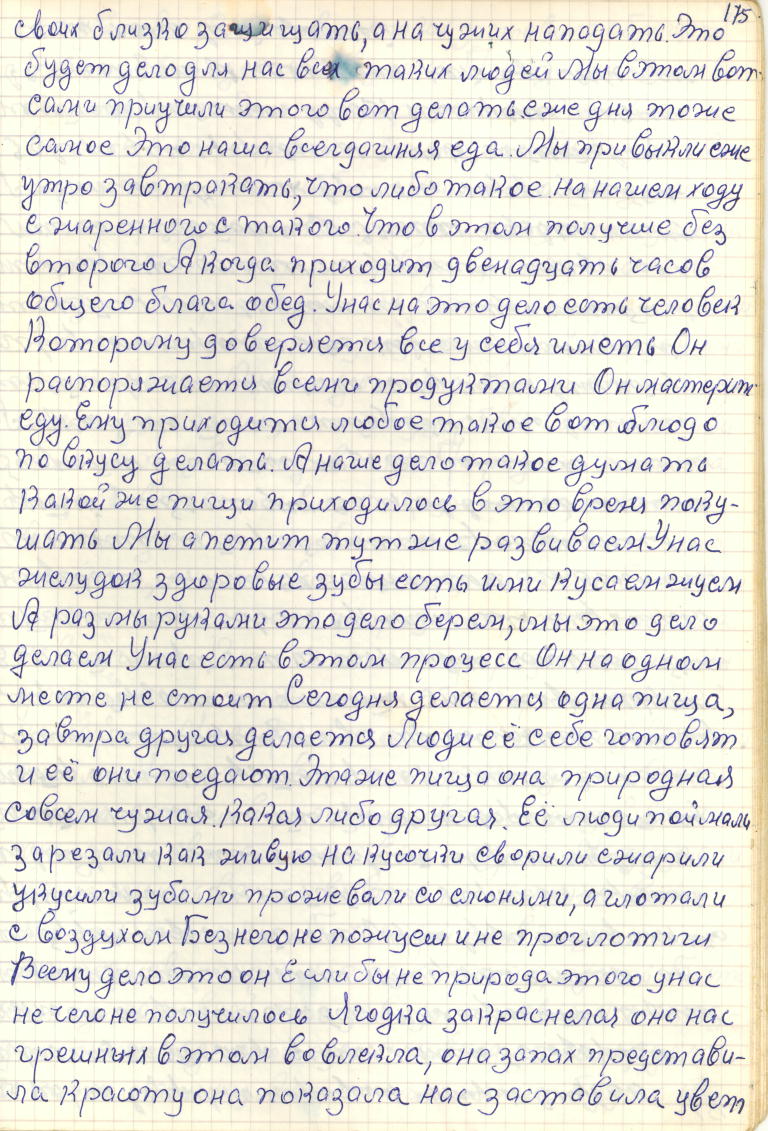 175
своих близко защищать, а на чужих нападать. Это
будет дело для нас всех таких людей Мы в этом вот
сами приучили этого вот делать еже дня тоже
самое Это наша всегдашняя еда. Мы привыкли еже
утро завтракать, что либо такое. на нашем ходу
с жаренного с такого. Что в этом получше без
второго А когда приходит двенадцать часов
общего блага обед. У нас на это дело есть человек
Которому доверяется все у себя иметь Он
распоряжается всеми продуктами Он мастерит
еду. Ему приходится любое такое вот блюдо
по вкусу делать. А наше дело такое думать
какой же пищи приходилось в это время поку-
шать Мы апетит тут же развиваем У нас
желудок здоровые зубы есть ими кусаем жуем
А раз мы руками это дело берем, мы это дело
делаем У нас есть в этом процесс Он на одном
месте не стоит Сегодня делается одна пища,
завтра другая делается Люди её себе готовят
и её они поедают. Эта же пища она природная
совсем чужая. Какая либо другая. Её люди поймали
зарезали как живую на кусочки сворили сжарили
укусили зубами прожевали со слюнями, а глотали
с воздухом Без него не пожуеш и не проглотиш
Всему дело это он Если бы не природа этого у нас
не чего не получилось Ягодка закраснелая она нас
грешных в этом вовлекла, она запах представи-
ла красоту она показала нас заставила цвет